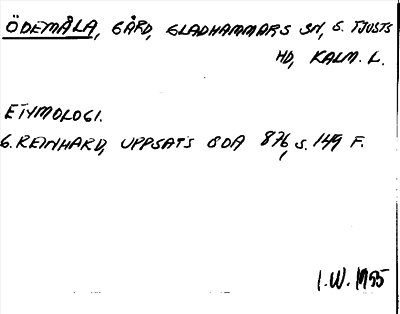 ÖDEMÅLA, GÅRD, GLADHAMMARS SN, S. TJUSTS
HD, KALM. L.
ETYMOLOGI.
G. REINHARD, UPPSATS ODA 876, S. 149 F.
I.W. 1955